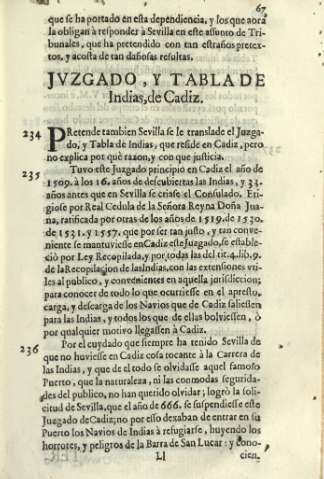 67
que se ha portado en esta dependencia, y los que aora
la obligan à responder à Sevilla en este assunto de Tri-
bunales, que ha pretendido con tan estraños pretex-
tos, y acosta de tan dañosas resultas.
JVZGADO, Y TABLA DE
Indias, de Cadiz.
234 PRetende tambien Sevilla se le translade el Juzga-
do, y Tabla de Indias, que reside en Cadiz, pero
no explica por què razon, y con que justicia.
235 Tuvo este Juzgado principio en Cadiz el año de
1509. à los 16. años de descubiertas las Indias, y 33.
años antes que en Sevilla se criase el Consulado. Eri-
giose por Real Cedula de la Señora Reyna Doña Jua-
na, ratificada por otras de los años de 1519. de 1530.
de 1531. y 1557. que por ser tan justo, y tan conve-
niente se mantuviesse en Cadiz este Juzgado, se estable-
ciò por Ley Recopilada, y por todas las del tit. 4. lib. 9.
de la Recopilacion de las Indias, con las extensiones vti-
les al publico, y convenientes en aquella jurisdiccion;
para conocer de todo lo que ocurriesse en el apresto,
carga, y descarga de los Navios que de Cadiz saliessen
para las Indias, y todos los que de ellas bolviessen, ò
por qualquier motivo llegassen à Cadiz.
236 Por el cuydado que siempre ha tenido Sevilla de
que no huviesse en Cadiz cosa tocante à la Carrera de
las Indias, y que de el todo se olvidasse aquel famoso
Puerto, que la naturaleza, ni las comodas segurida-
des del publico, no han querido olvidar; logrò la soli-
citud de Sevilla, que el año de 666. se suspendiesse este
Juzgado de Cadiz; no por esso dexaban de entrar en su
Puerto los Navios de Indias à refugiarse, huyendo los
horrores, y peligros de la Barra de San Lucar: y cono-
Ll cien-